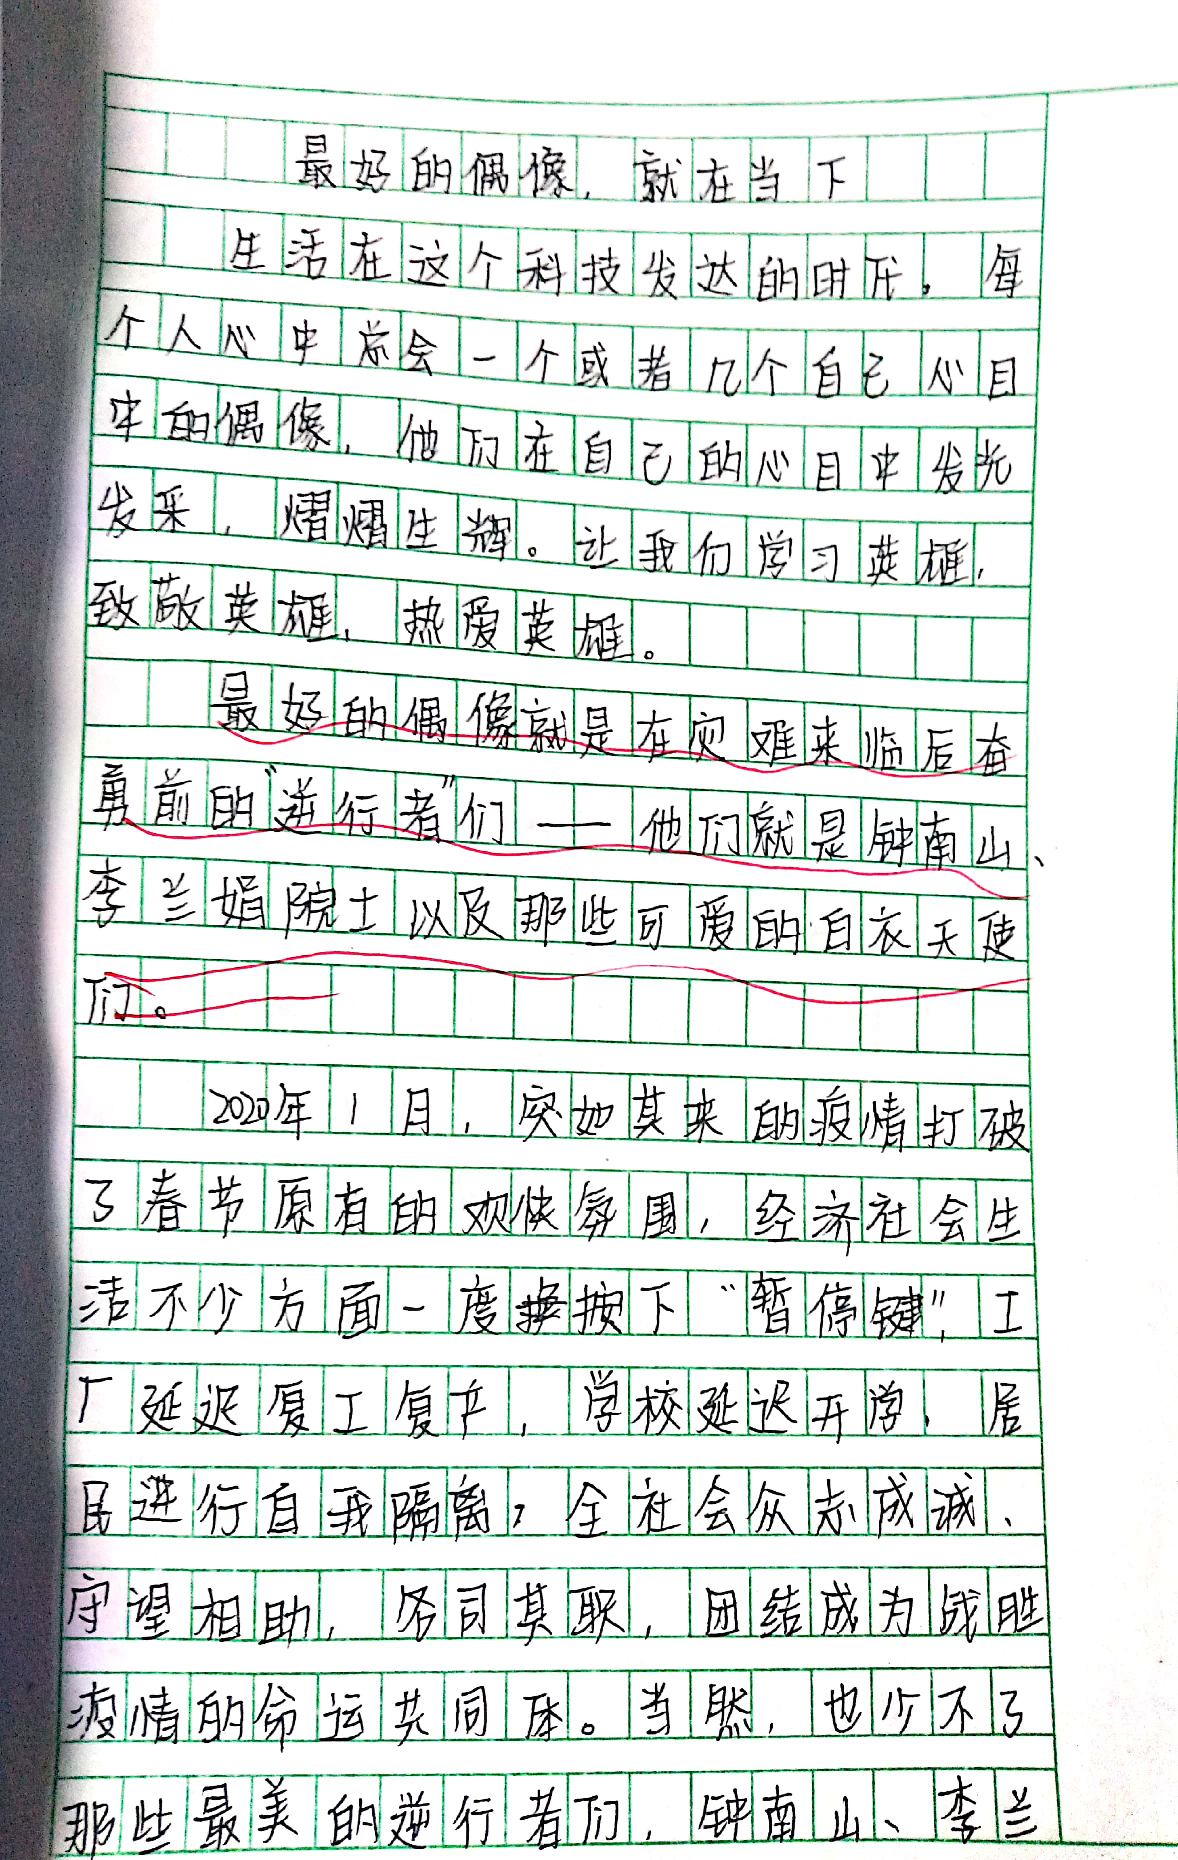 最好的偶像，就在当下
生活在这个科技发达的时代。每
个人心中总会一个或者几个自己心目
中的偶像，他们在自己的心目中发光
发采，熠熠生辉。让我们学习英雄，
致敬英雄，热爱英雄。
最好的偶像就是在灾难来临后奋
勇前的“逆行者”们——他们就是钟南山、
李兰娟院士以及那些可爱的白衣天使
们。
2020年1月，突如其来的疫情打破
了春节原有的欢快氛围，经济社会生
活不少方面一度按下“暂停键”，工
厂延迟复工复产，学校延迟开学，居
民进行自我隔离；全社会众志成诚、
守望相助，各司其职，团结成为战胜
疫情的命运共同体。当然，也少不了
那些最美的逆行者们，钟南山、李兰